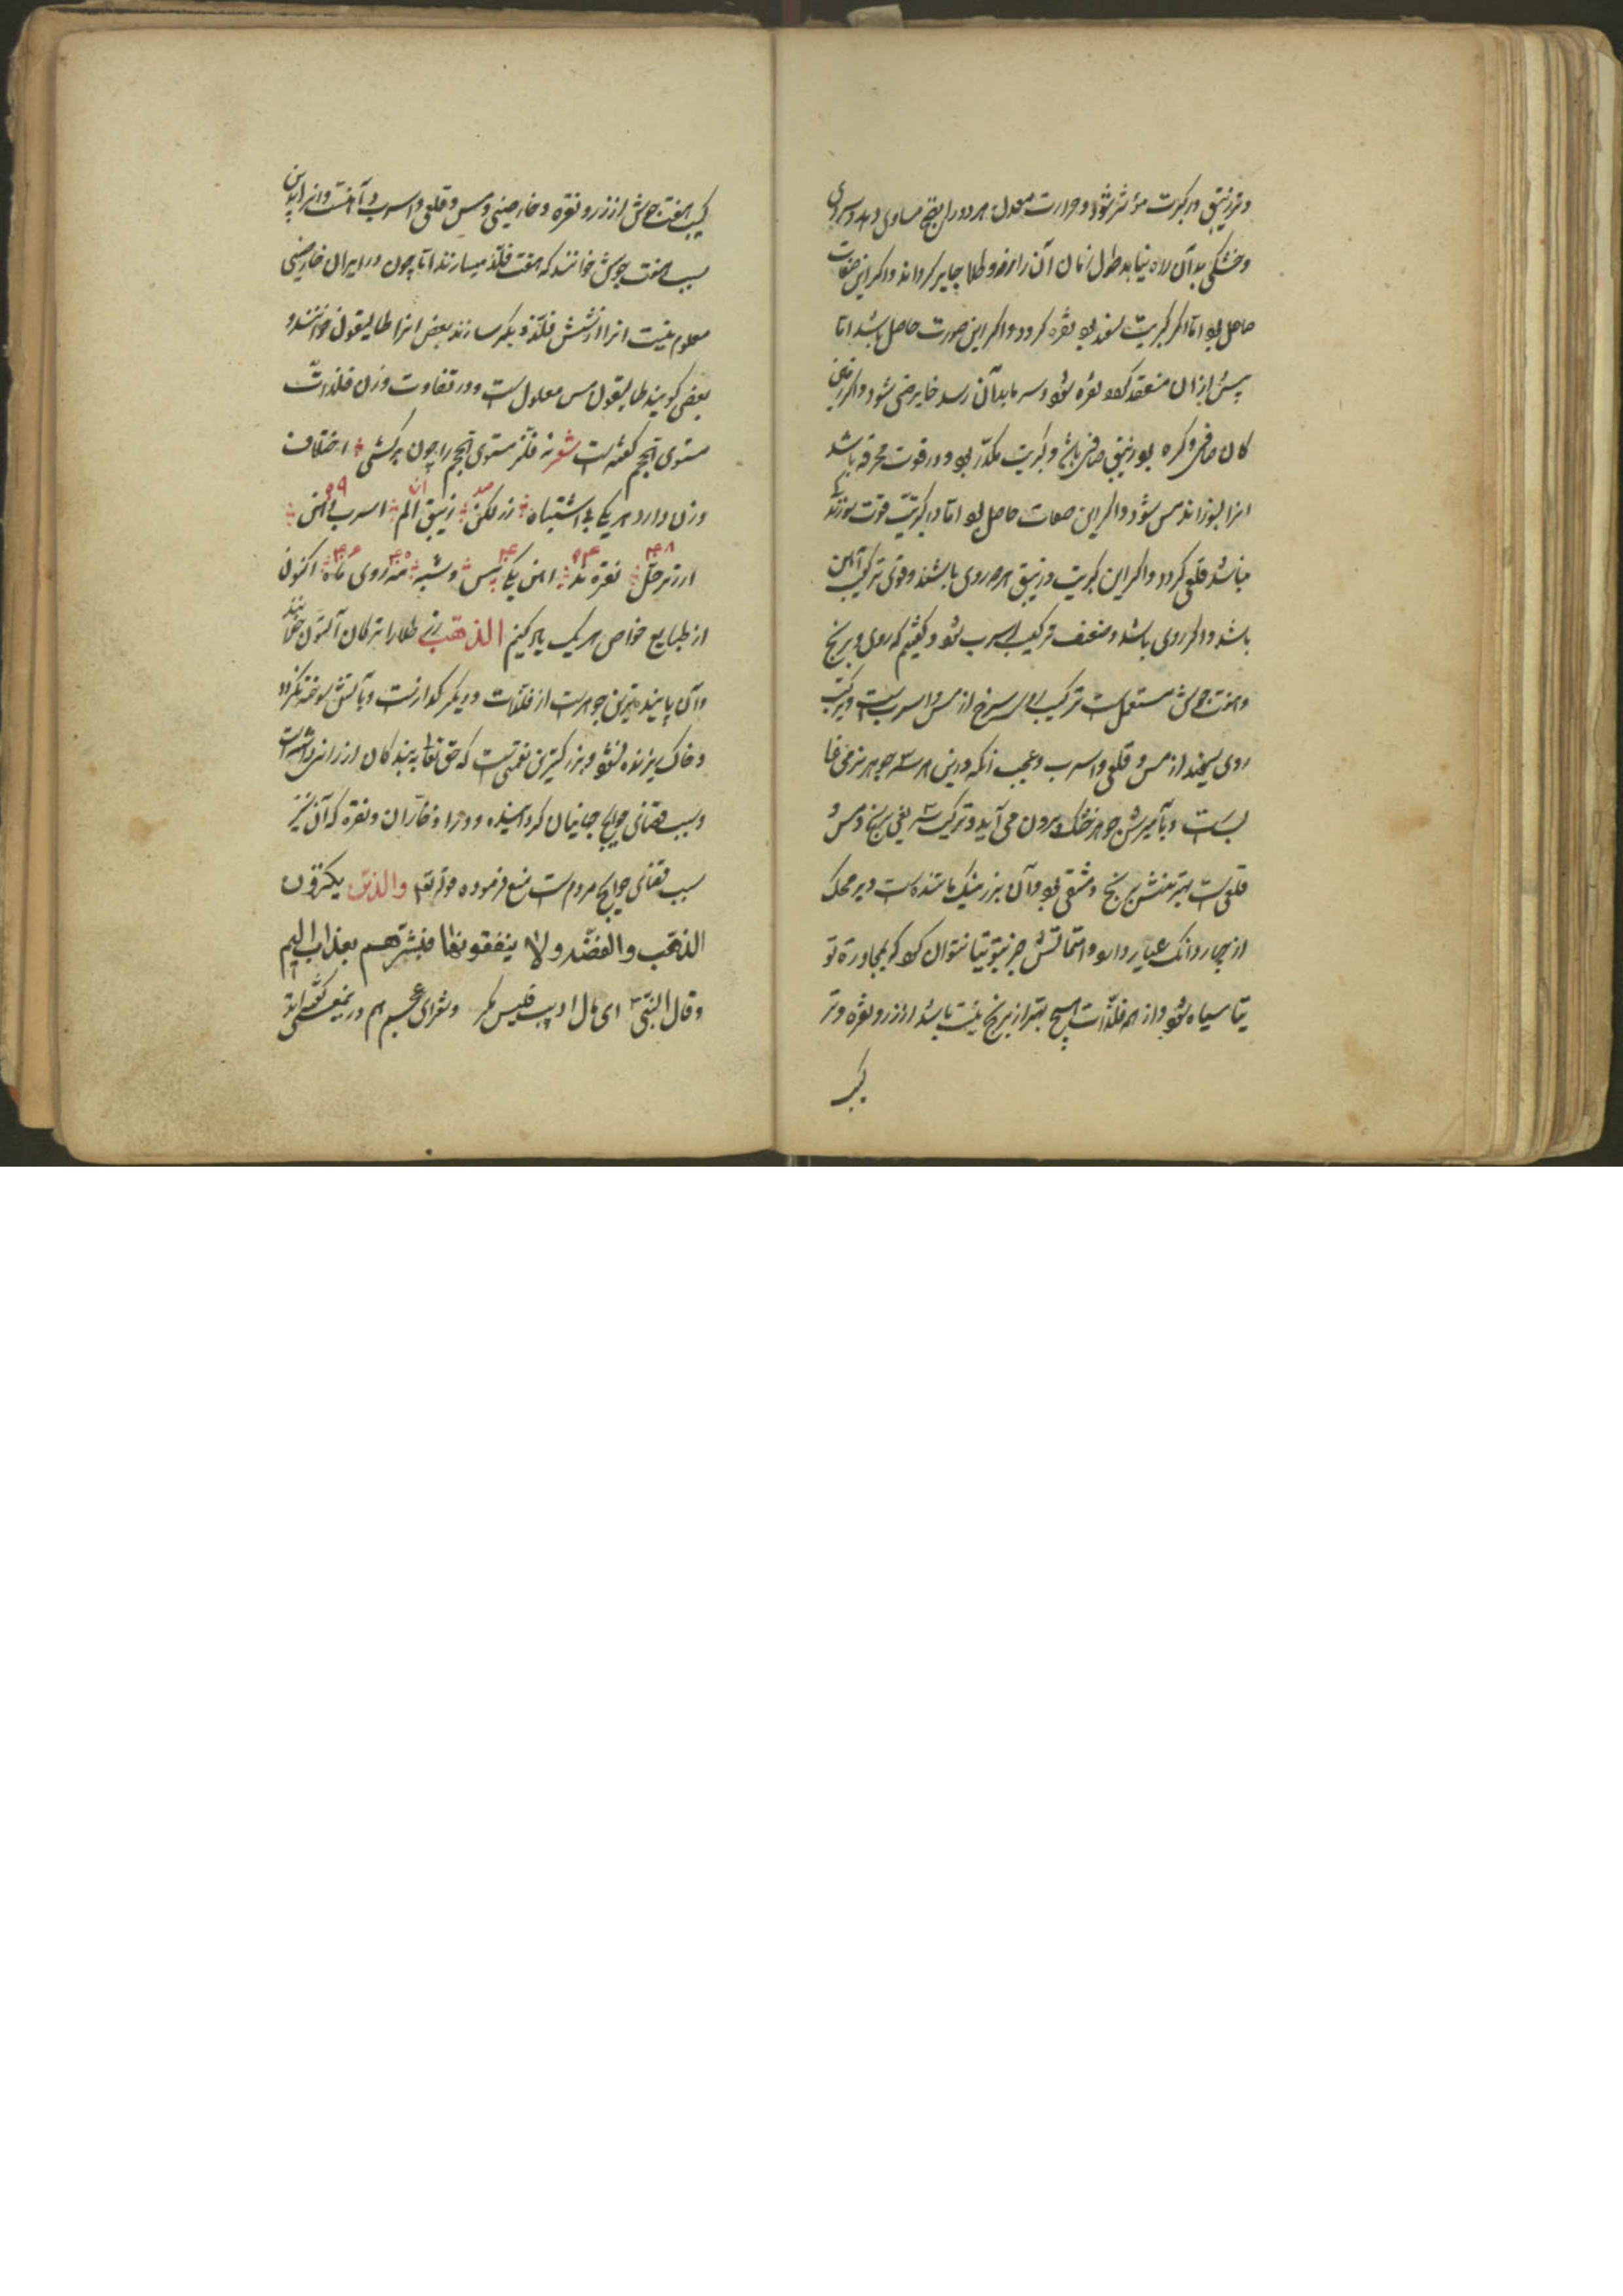 و تر زیبق در کبریت مؤثر شود و حرارت معدل هر دو را نضج مساوی دهد و سردی
و خشکی بدان راه نیابد طول زمان آن را زر و طلا جایر کرداند و اکر این صفات
حاصل بود اما اکر کبریت سفید بود نقره کردد و اکر این صورت حاصل باشد اما
پیش از ان منعقد کردد نقره شود و سرما بدان رسد خارصینی شود و اکر زمین
کان صافی و کره بود زیبق صافی باشد و کبریت مکدر بود و در قوت محرقه باشد
انرا بسوزاند مس شود و اکر این صفات حاصل بود اما در کبریت قوت سوزندکی
نباشد قلعی کردد و اکر این کبریت و زیبق هر دو ردی باشند و قوی ترکیب آهن
باشد و اکر ردی باشد و ضعف ترکیب اسرب شود و کفتیم که روی و برنج
و هفت جوش مستعمل است ترکیب روی سرخ از مس و اسرب است و در کتب
روی سیخند از مس و قلعی و اسرب و عجب آنکه در این هر سه جوهر نرمی غا
لبست و بآمیزش جوهر خشک بیرون می آید و ترکیب شریفی برنج از مس و
قلعی است بهترینش برنج دمشقی بود و آن بزر نیک مانندست و بر محک
از چهار دانک عیار دارد و امتحانش جز بتوتیا نتوان کرد کو بمجاورة تو
تیا سیاه شود و از همه فلذات هیچ بهتر از برنج نیست باشد از زر و نقره و تر
کیب
کیب هفت جوش از زر و نقره و خارصینی و مس و قلعی و اسرب و آهنست و انرا بدین
سبب هفت جوش خوانند که هفت فلذ میسازند اما چون در ایران خارصینی
معلوم نیست انرا از شش فلذ دیکر سازند بعض انرا طالیقون خوانند و
بعضی کویند طالیقون مس معلول است و در تفاوت وزن فلذات
مستوی الحجم کفته است شعر نه فلز مستوی الحجم را چون برکشی اختلاف
وزن دارد هر یکی بی اشتباه زر لکن زیبق الم اسرب دهن
ارزیز حل نقره ند اهن یکی مس و شبه مه روی ماه اکنون
از طبایع خواص هر یک یاد کنیم الذهب زر طلا را ترکان آلتون خوانند
و آن پاینده ترین جوهرست از فلذات و دیر کدازست و بآتش سوخته نکردد
و خاک ریزنده نشود و بزرکترین نعمتی است که حق تعالی به بندکان ارزانی داشته است
و سبب قضای حوایج جهانیان کردانیده و در ادخار آن و نقره که آن نیز
سبب قضای حوایج مردم است منع فرموده قوله تعالی والذین یکنزون
الذهب والفضه ولا ینفقونها فبشرهم بعذاب الیم
وقال النبی ای مال ادیت فلیس بکنز و شعرای عجم هم در یمعنی کفته اند